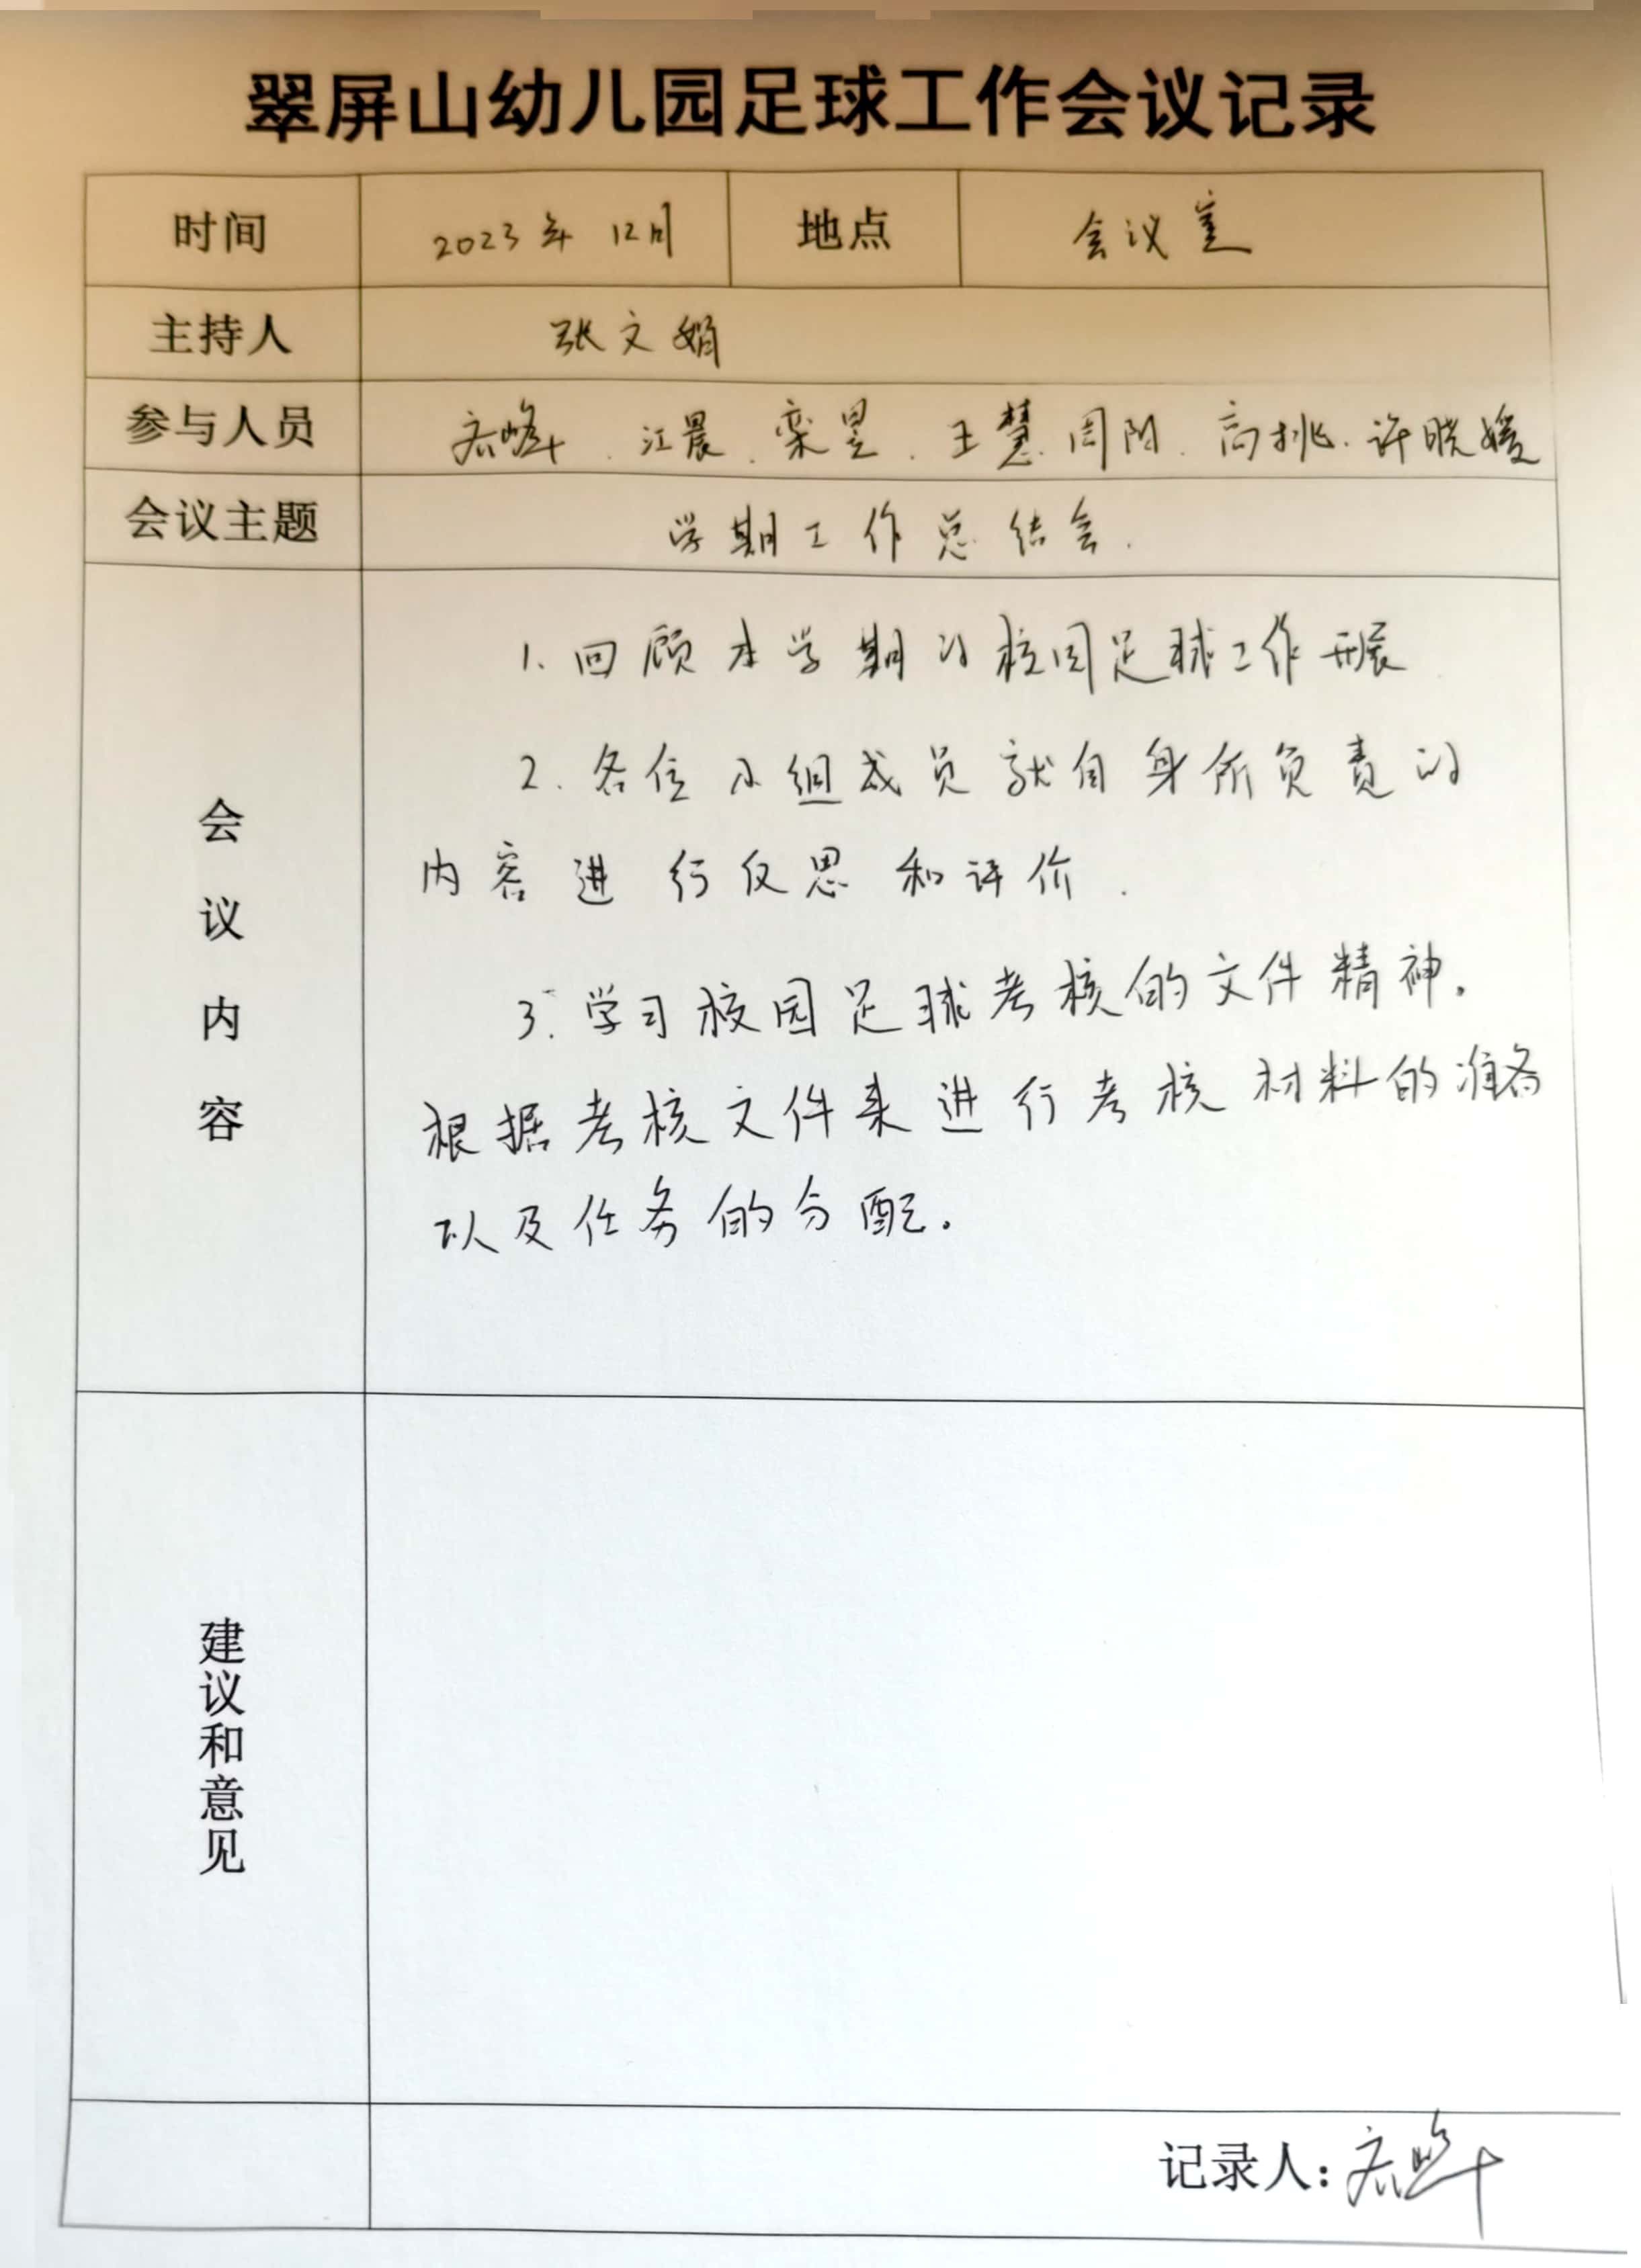 翠屏山幼儿园足球工作会议记录
时间 2023年12月 地点 会议室
主持人 张文娟
参与人员 峰、江晨、栾昱、王慧、周阳、高挑、许晓媛
会议主题 学期工作总结会.
会议内容
1. 回顾本学期的校园足球工作开展
2. 各位小组成员就自身所负责的
内容进行反思和评价.
3. 学习校园足球考核的文件精神。
根据考核文件来进行考核材料的准备
以及任务的分配。
建议和意见
记录人：峰